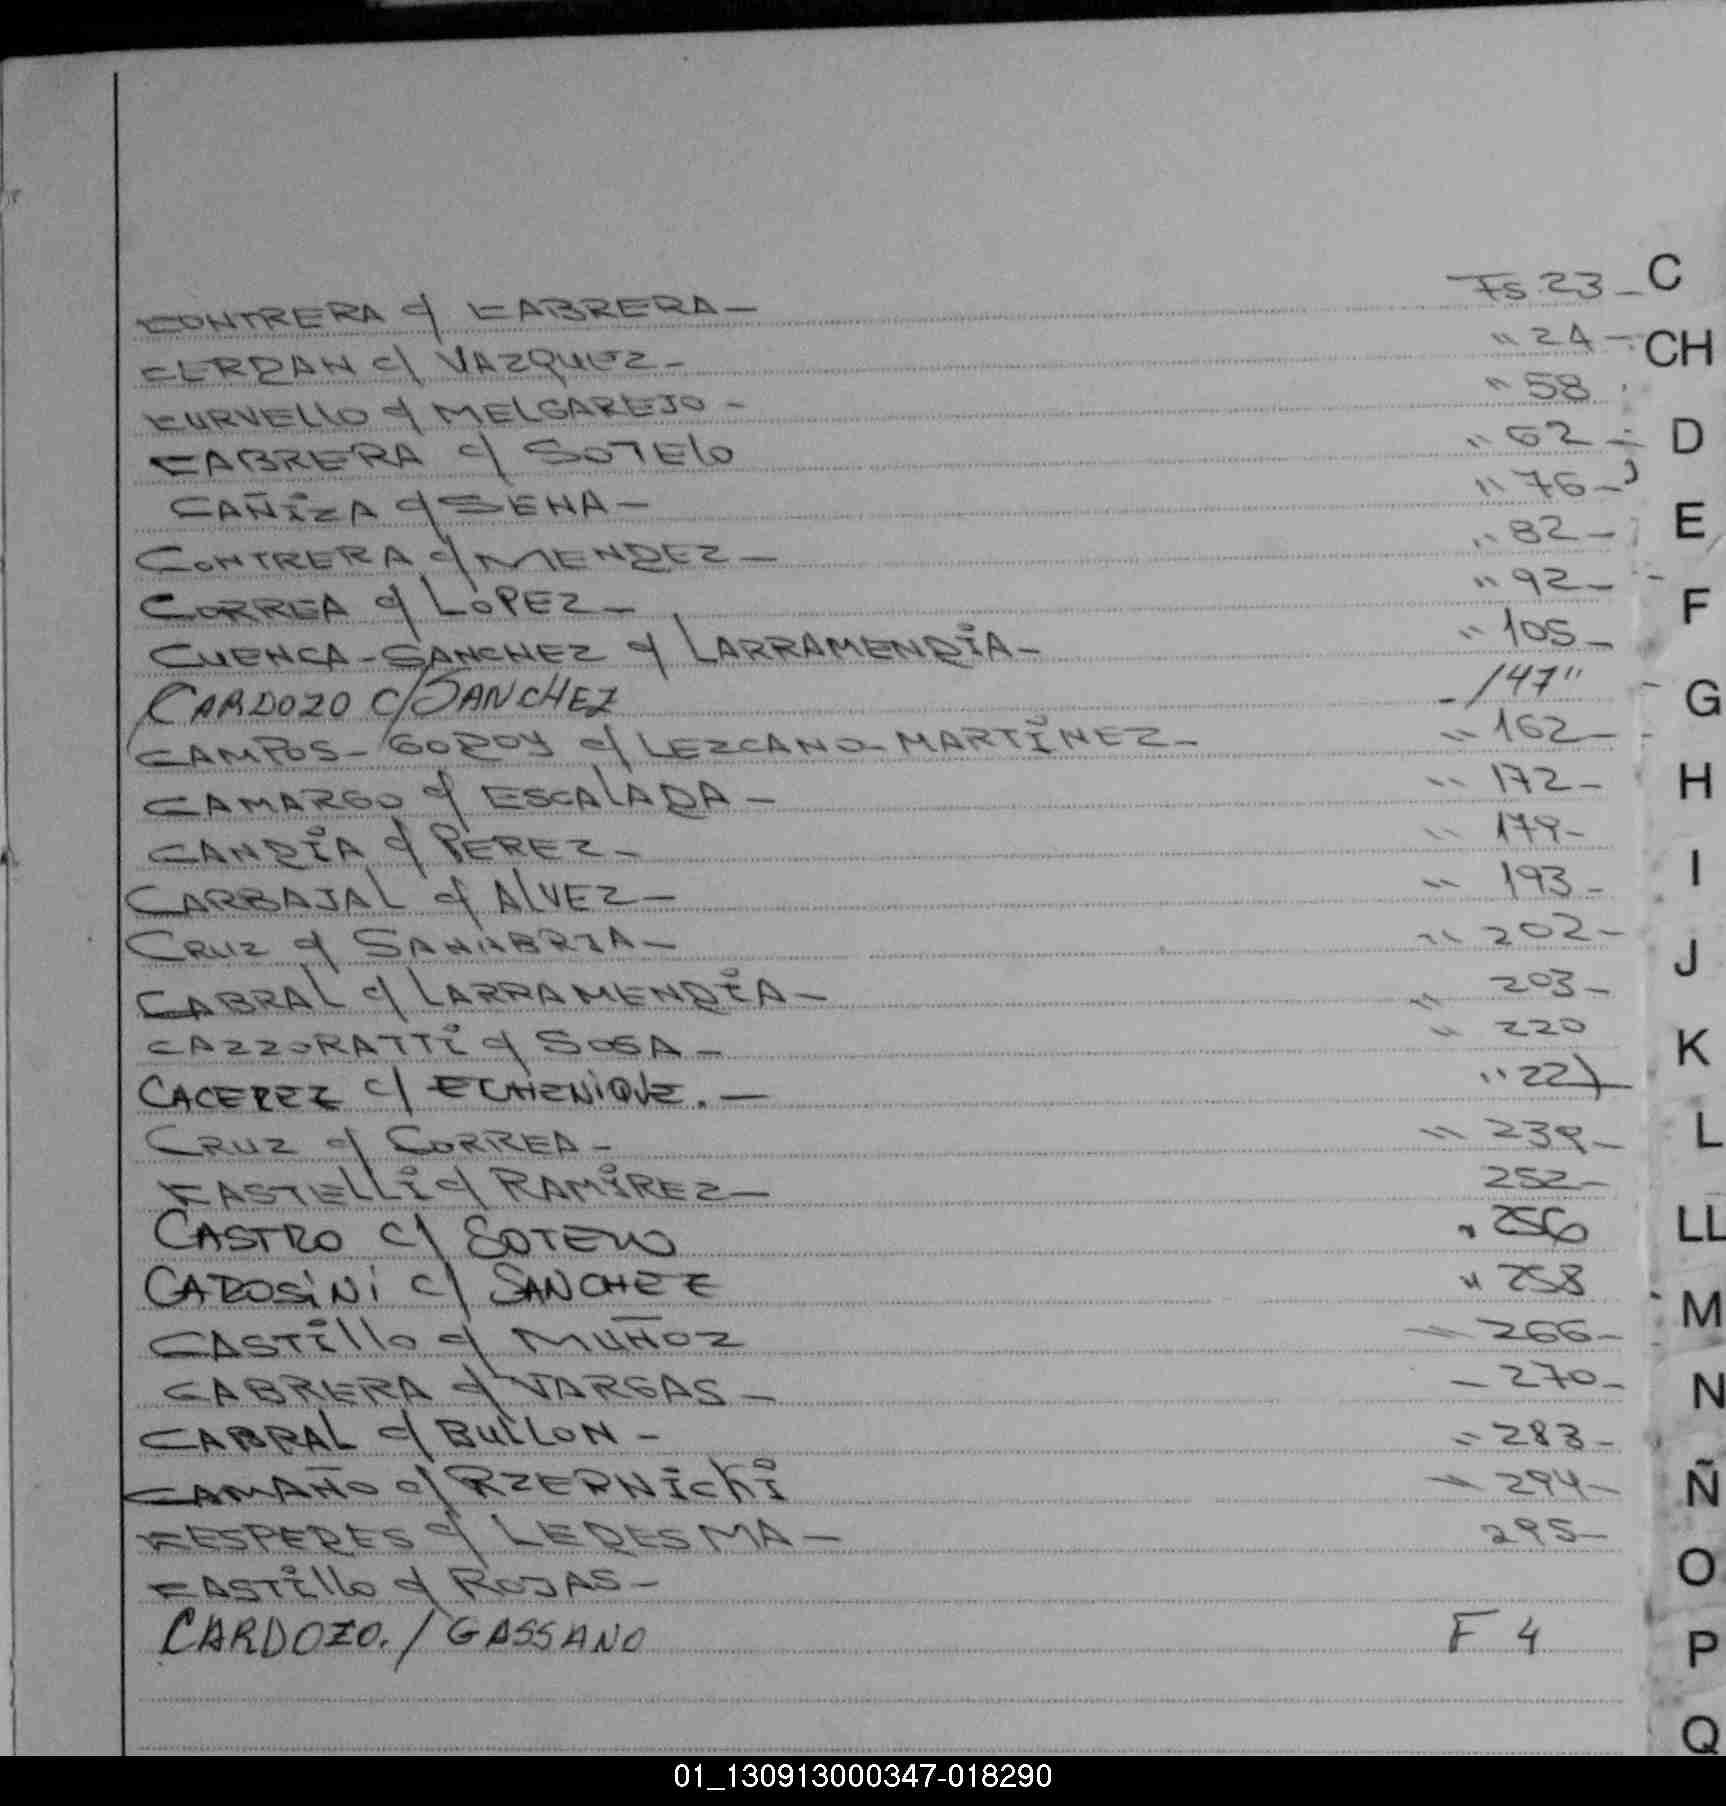 CONTRERA c/ CABRERA - Fs 23 - C
CERDAN c/ VAZQUEZ - " 24 - CH
CURVELLO c/ MELGAREJO - " 58
CABRERA c/ SOTELO " 62 - D
CAÑiZA c/ SENA - " 76 -
CONTRERA c/ MENDEZ - " 82 - E
CORREA c/ LOPEZ - " 92 - F
CUENCA - SANCHEZ c/ LARRAMENDiA - " 105 -
CARDOZO C/ SANCHEZ - 147 " G
CAMPOS - GODOY c/ LEZCANO - MARTiNEZ - " 162 -
CAMARGO c/ ESCALADA - " 172 - H
CANDiA c/ PEREZ - " 179 -
CARBAJAL c/ ALVEZ - " 193 - I
CRUZ c/ SANABRIA - " 202 - J
CABRAL c/ LARRAMENDiA - " 203 -
CAZZORATTi c/ SOSA - " 220 K
CACEREZ c/ ECHENiQUE. - " 221
CRUZ c/ CORREA - " 239 - L
CASTELLi c/ RAMiREZ - 252 -
CASTRO C/ SOTELO " 256 LL
CAROSiNi C/ SANCHEZ " 258 M
CASTillo c/ MUÑOZ " 266 -
CABRERA c/ VARGAS - - 270 - N
CABRAL c/ BULLON - " 283 -
CAMAÑO c/ RZERNicki " 294 - Ñ
CESPEDES c/ LEDESMA - 295 - O
CASTillo c/ ROJAS -
CARDOZO. / GASSANO F 4 P
Q
01_130913000347-018290